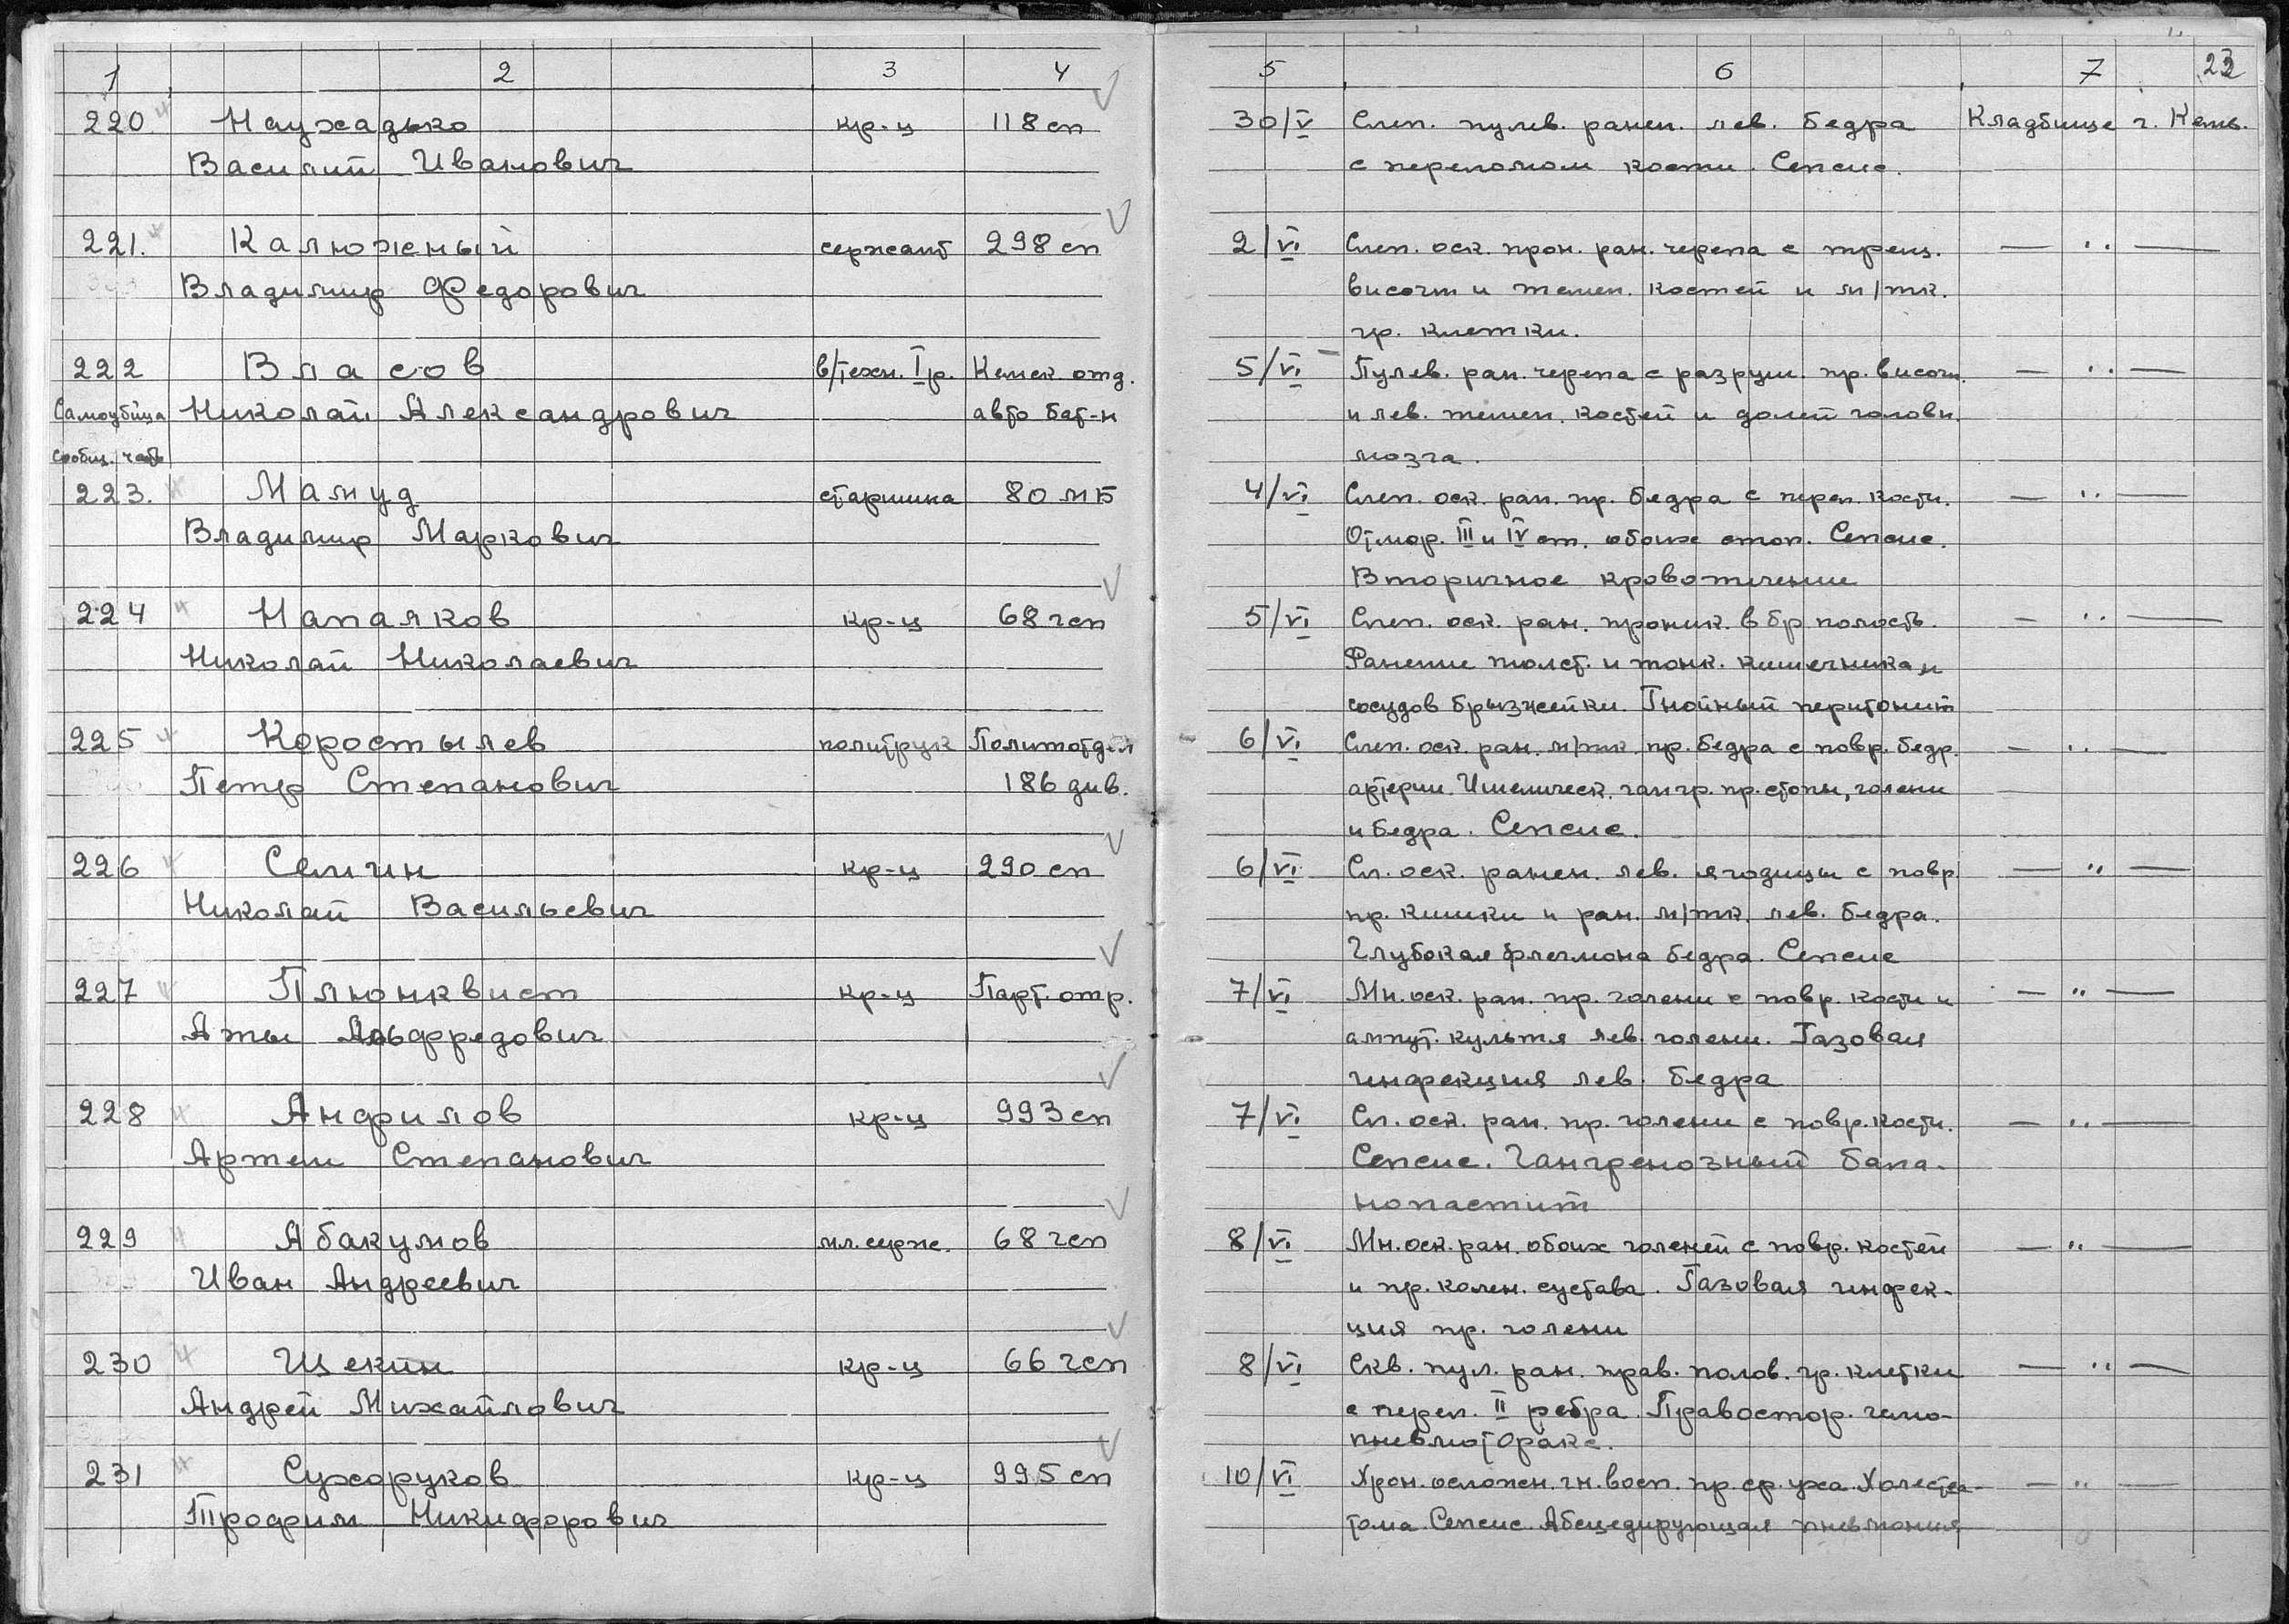 1 2 3 4 5 6 7 23
220. Наухадько кр-ц 118 сп 30/V Слеп. пулев. ранен. лев. бедра Кладбище г. Кемь.
Василий Иванович с переломом кости. Сепсис.
221. Калюжный сержант 298 сп 2/VI Слеп. оск. прон. ран. черепа с трещ. — ,, —
Владимир Федорович височн и темен. костей и м/тк.
гр. клетки.
222 Власов в/техн. I р. Кемск. отд. 5/VI Пулев. ран. черепа с разруш. пр. височн. — ,, —
Самоубийца Николай Александрович авто бат-н и лев. темен. костей и долей головн.
сообщ. часть мозга.
223. Мамуд старшина 80 МБ 4/VI Слеп. оск. ран. пр. бедра с переп. кости. — ,, —
Владимир Маркович Отмор. III и IV ст. обоих стоп. Сепсис.
Вторичное кровотечение
224 Напалков кр-ц 68 гсп 5/VI Слеп. оск. ран. проник. в бр полость. — ,, —
Николай Николаевич Ранение толст. и тонк. кишечника и
сосудов брызжейки. Гнойный перитонит
225 Коростылев политрук Политотдел 6/VI Слеп. оск. ран. м/тк. пр. бедра с повр. бедр. — ,, —
Петр Степанович 186 див. артерии. Ишемическ. гангр. пр. стопы, голени
и бедра. Сепсис.
226 Семчин кр-ц 290 сп 6/VI Сл. оск. ранен. лев. ягодицы с повр. — ,, —
Николай Васильевич пр. кишки и ран. м/тк. лев. бедра.
Глубокая флегмона бедра. Сепсис
227 Плюнквист кр-ц Парт. отр. 7/VI Мн. оск. ран. пр. голени с повр. кости и — ,, —
Аты Альфредович ампут. культя лев. голени. Газовая
инфекция лев. бедра
228 Анфилов кр-ц 993 сп 7/VI Сл. оск. ран. пр. голени с повр. кости. — ,, —
Артем Степанович Сепсис. Гангренозный бала-
нопастит
229 Абакумов мл. серж. 68 гсп 8/VI Мн. оск. ран. обоих голеней с повр. костей — ,, —
Иван Андреевич и пр. колен. сустава. Газовая инфек-
ция пр. голени
230 Щекин кр-ц 66 гсп 8/VI Скв. пул. ран. прав. полов. гр. клетки — ,, —
Андрей Михайлович с переп. II ребра. Правостор. гемо-
пневмоторакс.
231 Сухоруков кр-ц 995 сп 10/VI Хрон. осложн. гн. восп. пр. ср. уха. Холестеа- — ,, —
Трофим Никифорович тома. Сепсис. Абсцедирующая пневмония